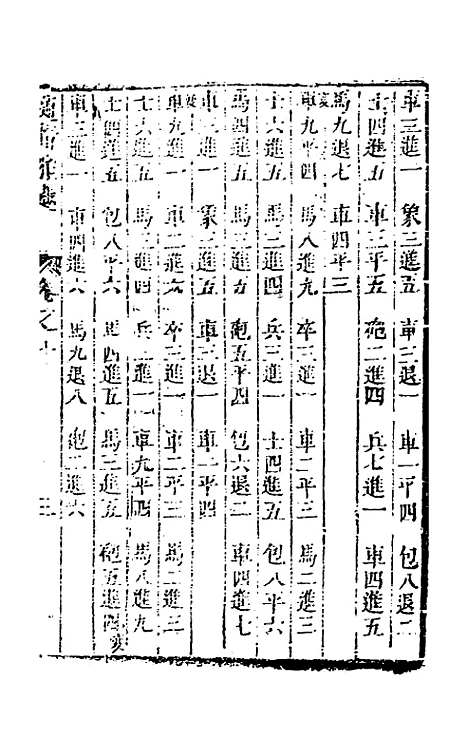 車三進一 象三進五 車三退一 車一平四 包八退二
士四進五 車三平五 砲二進四 兵七進一 車四進五
馬九退七 車四平三
車九平四 馬八進九 卒三進一 車二平三 馬二進三
士六進五 馬三進四 兵三進一 士四進五 包八平六
馬四進五 馬三進五 砲五平四 包六退二 車四進七
車三進一 象三進五 車三退一 車一平四
車九進一 車二進六 卒三進一 車二平三 馬二進三
士六進五 馬三進四 兵三進一 車九平四 馬八進九
士四進五 包八平六 馬四進五 馬三進五 砲五進四
車三進一 車四進六 馬九退八 砲二進六
卷之十 三